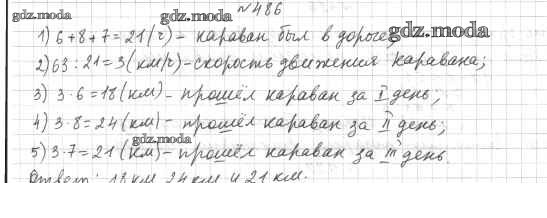 №486
gdz.moda gdz.moda
1) 6+8+7=21(ч) - караван был в дороге; gdz.moda
2) 63:21=3(км/ч)-скорость движения каравана;
3) 3·6=18(км)- прошёл караван за I день;
4) 3·8=24(км)- прошёл караван за II день;
gdz.moda
5) 3·7=21(км)- прошёл караван за III день.
Ответ: 18 км, 24 км и 21 км.